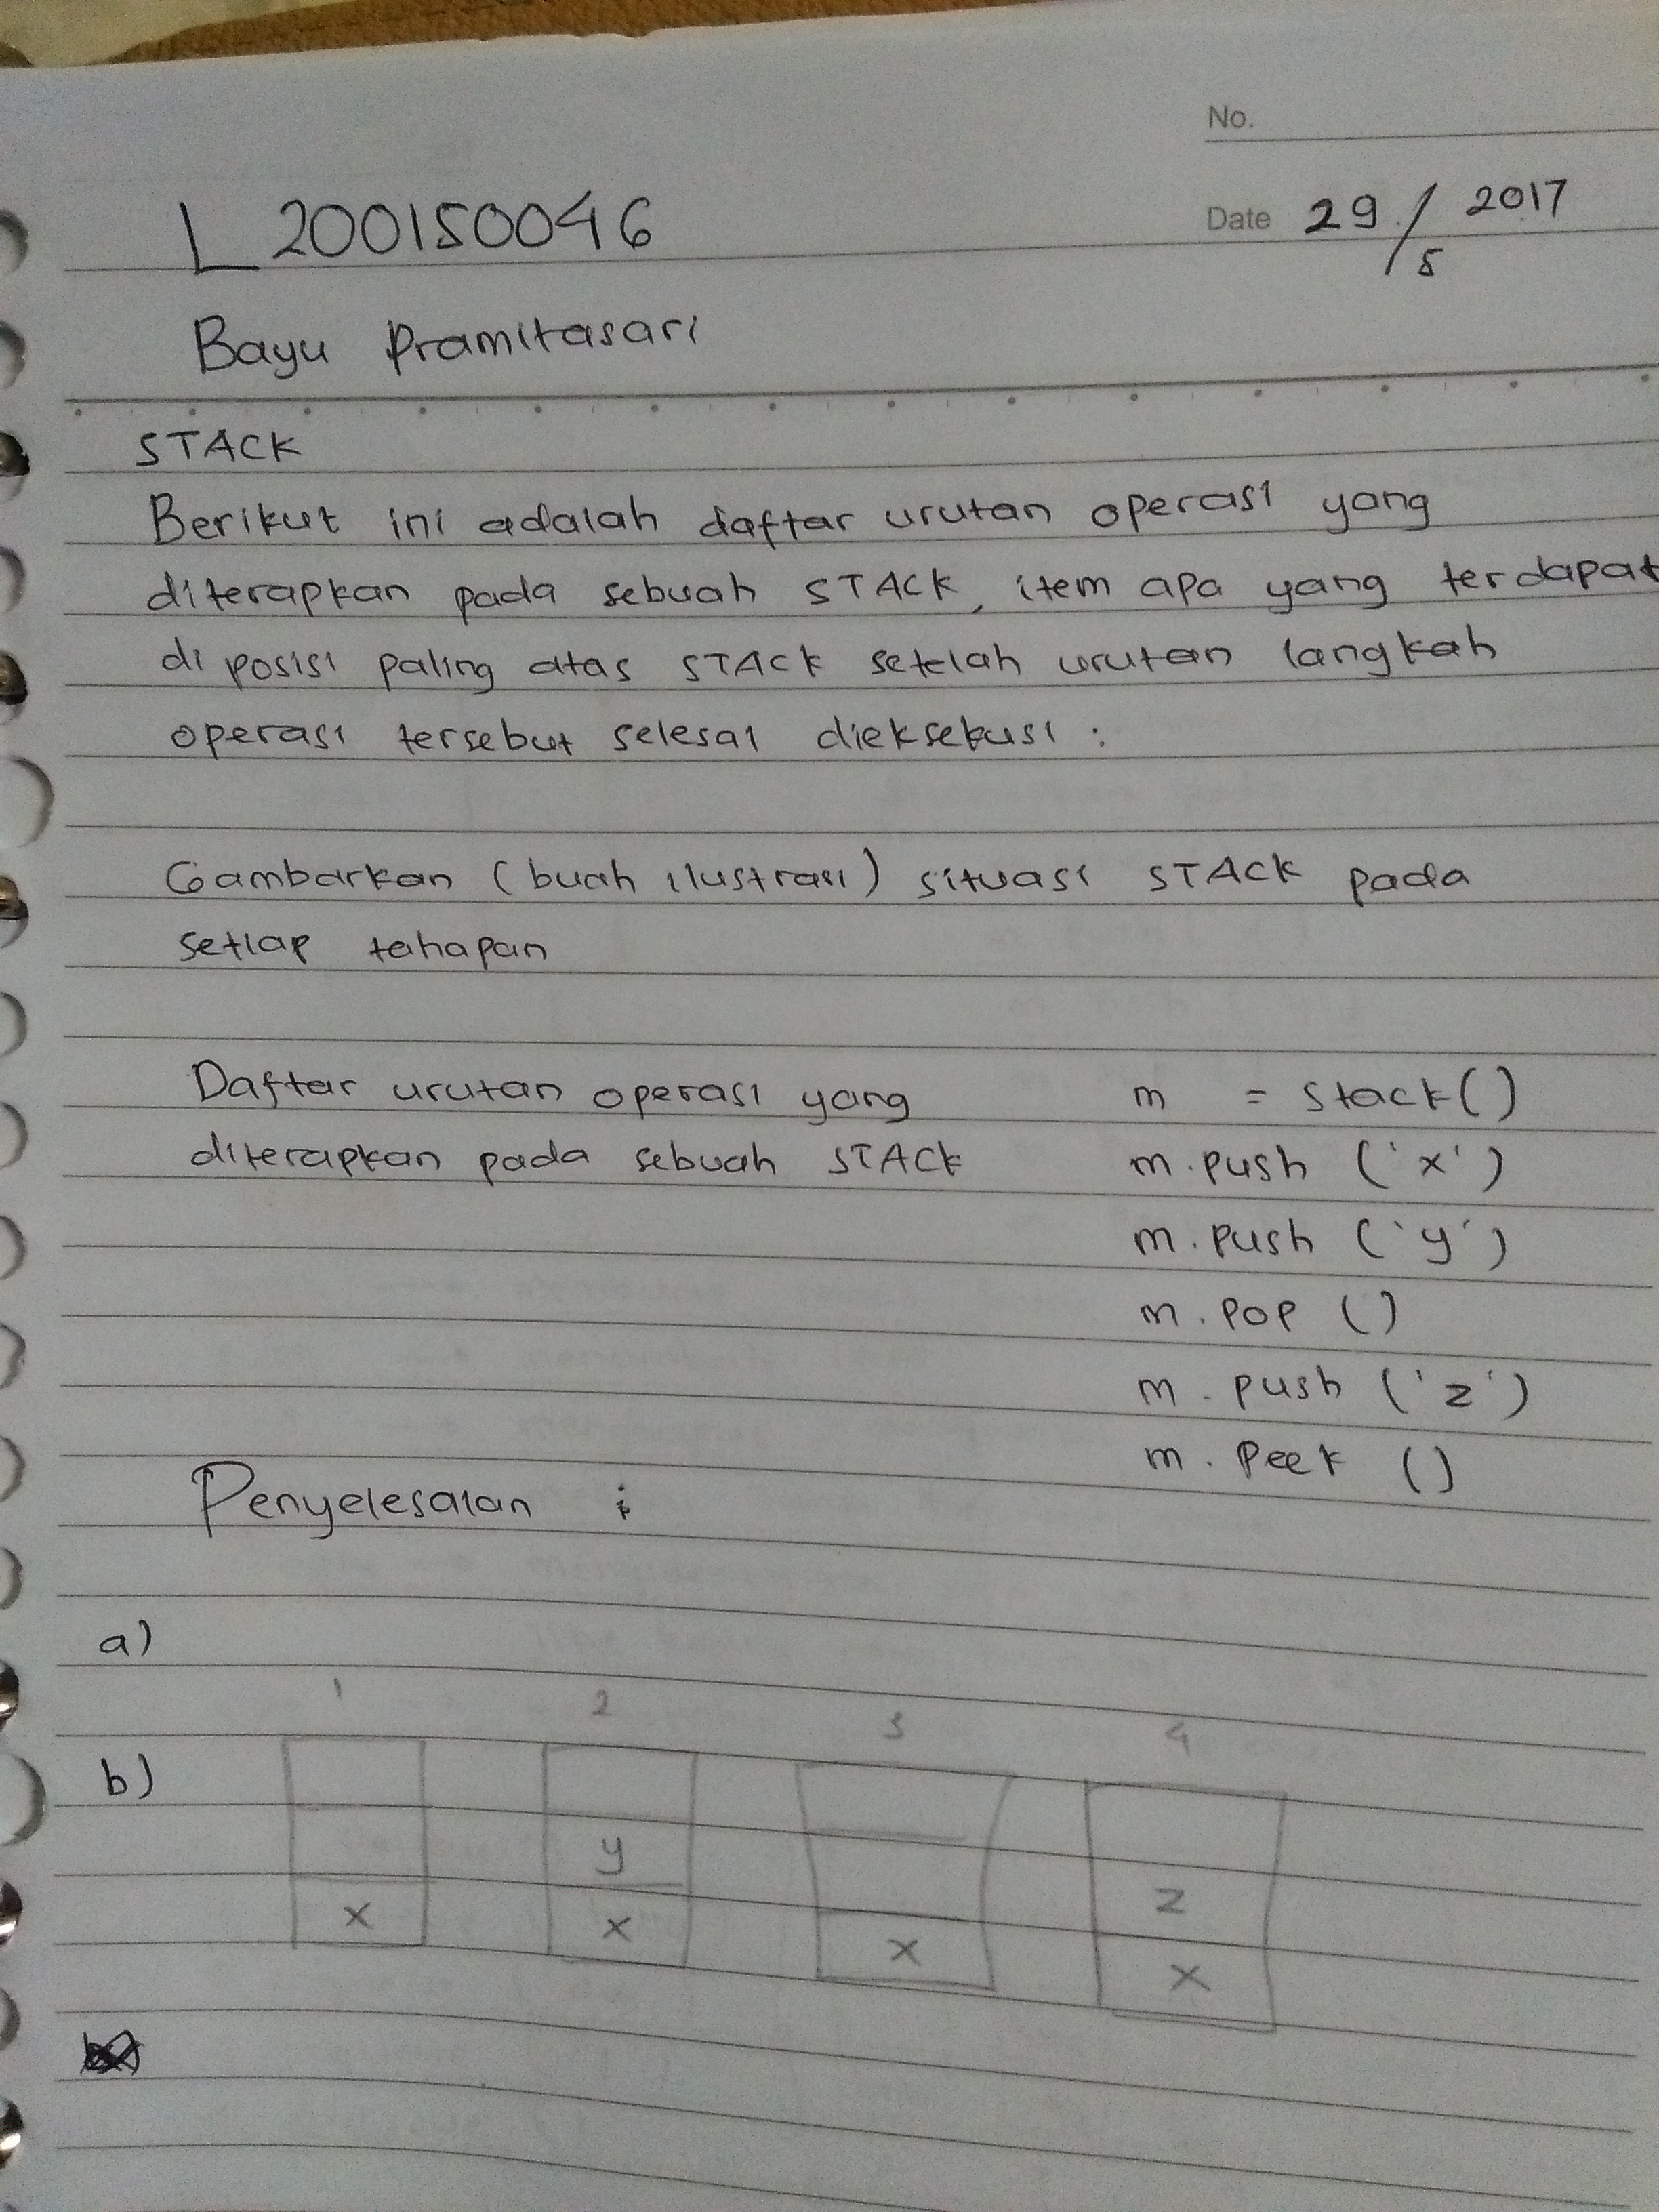 No.
L200150046
Date 29/5 2017
Bayu Pramitasari
STACK
Berikut ini adalah daftar urutan operasi yang
diterapkan pada sebuah STACK, item apa yang terdapat
di posisi paling atas STACK setelah urutan langkah
operasi tersebut selesai dieksekusi :
Gambarkan (buah ilustrasi) situasi STACK pada
setiap tahapan
Daftar urutan operasi yang m = stack()
diterapkan pada sebuah STACK m.push ('x')
m.push ('y')
m.pop ()
m.push ('z')
m.peek ()
Penyelesaian :
a)
1 2 3 4
b)
y z
x x x x